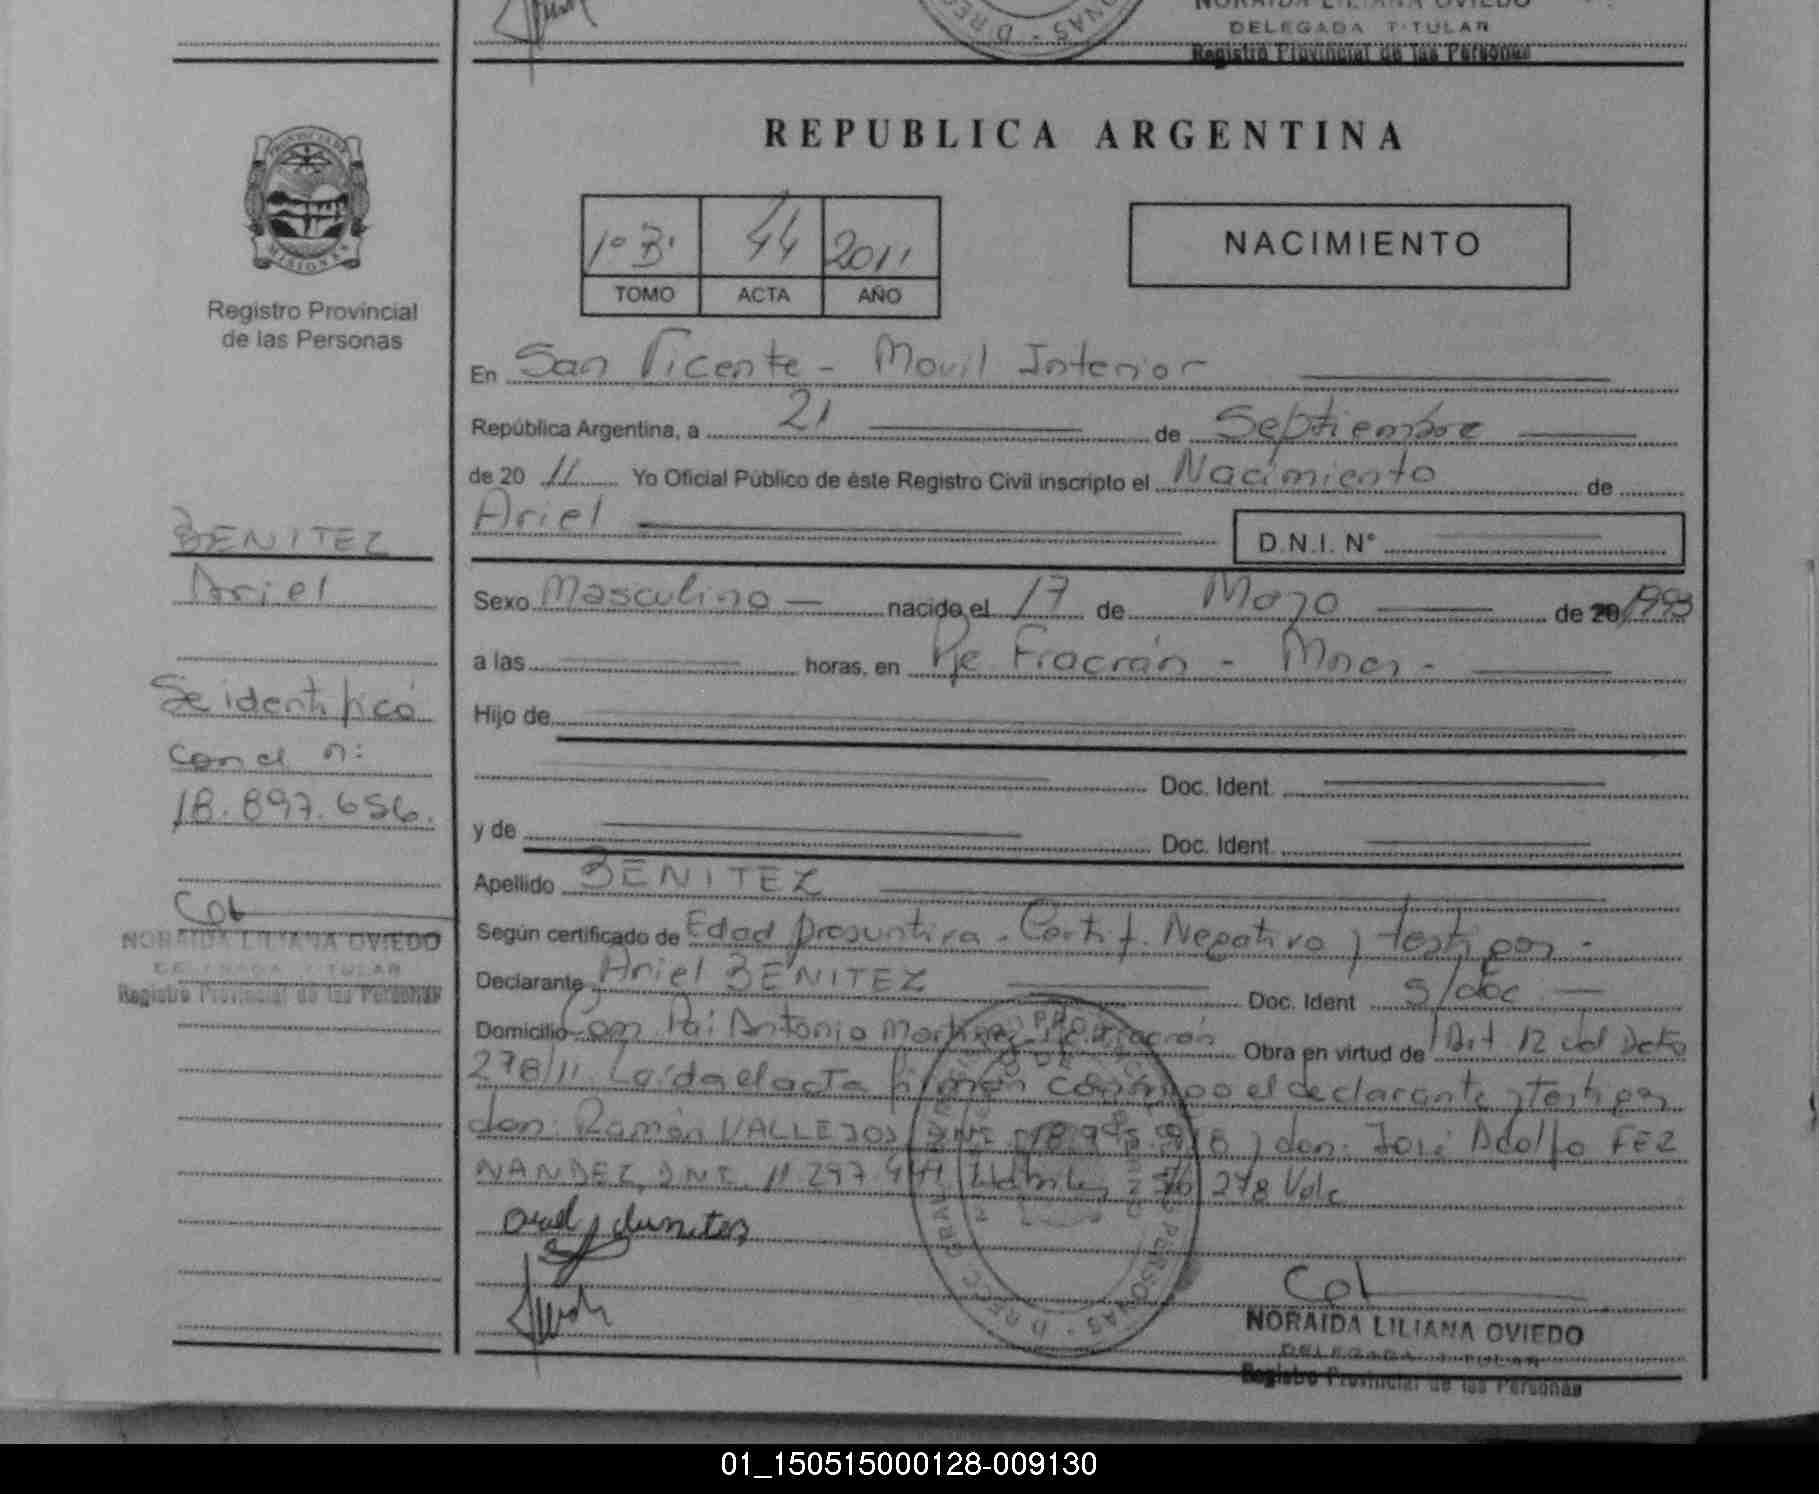 NORAIDA LILIANA OVIEDO
DELEGADA TITULAR
Registro Provincial de las Personas
PROVINCIA DE
MISIONES
Registro Provincial
de las Personas
BENITEZ
Ariel
Se identificó
con el n:
18.897.656.
NORAIDA LILIANA OVIEDO
DELEGADA TITULAR
Registro Provincial de las Personas
REPUBLICA ARGENTINA
1º B. 44 2011
TOMO ACTA AÑO
NACIMIENTO
En San Vicente - Movil Interior
República Argentina, a 21 de Septiembre
de 20 11 Yo Oficial Público de éste Registro Civil inscripto el Nacimiento de
Ariel D.N.I. Nº
Sexo Masculino nacido el 17 de Mayo de 20 1993
a las horas, en Pje Fracrán - Mnes -
Hijo de
Doc. Ident.
y de Doc. Ident.
Apellido BENITEZ
Según certificado de Edad presuntiva - Certif. Negativo y testigos -
Declarante Ariel BENITEZ Doc. Ident S/doc
Domicilio Com Pai Antonio Martinez Fracrán Obra en virtud de Art 12 del Dcto
278/11. Leída el acta firman conmigo el declarante y testigos
don: Ramón VALLEJOS, DNI y don: José Adolfo FER
NANDEZ, DNI. 11.297.441 278 Vale
NORAIDA LILIANA OVIEDO
DELEGADA TITULAR
Registro Provincial de las Personas
01_150515000128-009130